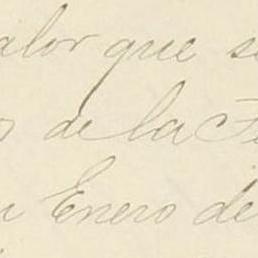 alor que s
de la F
Enero de